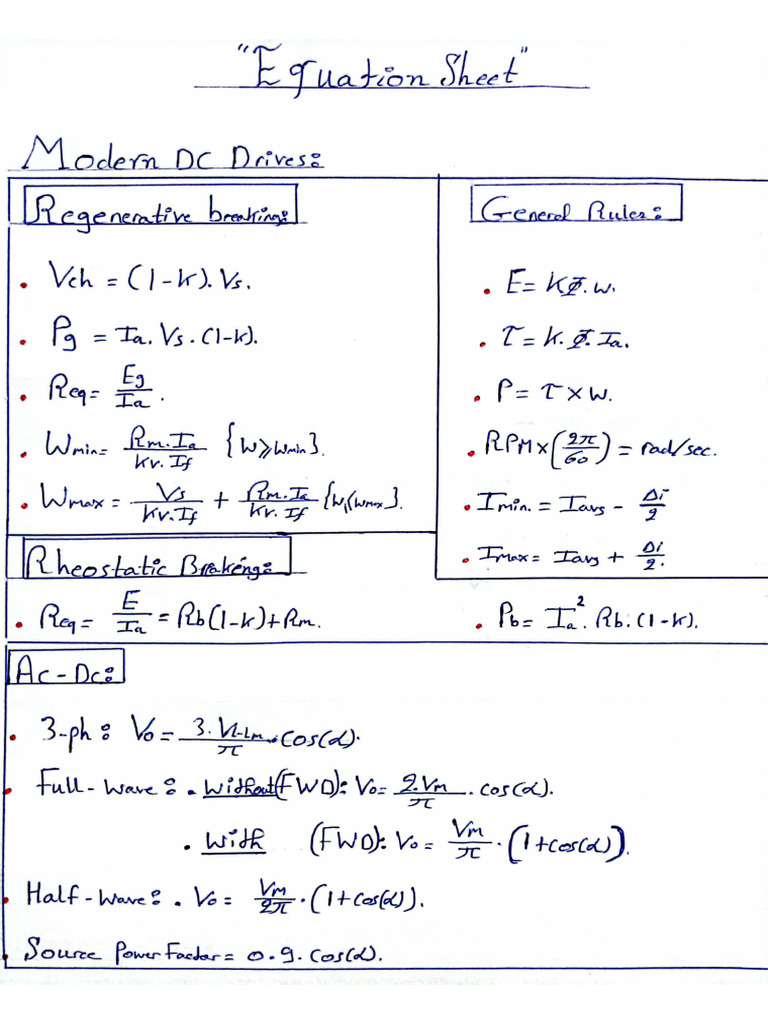 "Equation Sheet"
Modern DC Drives:
Regenerative breaking:
• Vch = (1-k). Vs.
• Pg = Ia. Vs. (1-k).
• Req = Eg/Ia.
• Wmin = Rm.Ia/Kv.If {W≥Wmin}.
• Wmax = Vs/Kv.If + Rm.Ia/Kv.If {W≤Wmax}.
General Rules:
• E = KΦ.w.
• T = K.Φ.Ia.
• P = T × W.
• RPM × (2π/60) = rad/sec.
• Imin. = Iavg - Δi/2
• Imax = Iavg + Δi/2.
Rheostatic Braking:
• Req = E/Ia = Rb(1-k)+Rm.
• Pb = Ia². Rb. (1-k).
Ac-Dc:
• 3-ph: Vo = 3.Vl-Lm/π . cos(α).
• Full-wave: • without (FWD): Vo = 2.Vm/π . cos(α).
• With (FWD): Vo = Vm/π . (1+cos(α)).
• Half-wave: • Vo = Vm/2π . (1+cos(α)).
• Source Power Factor = 0.9. cos(α).